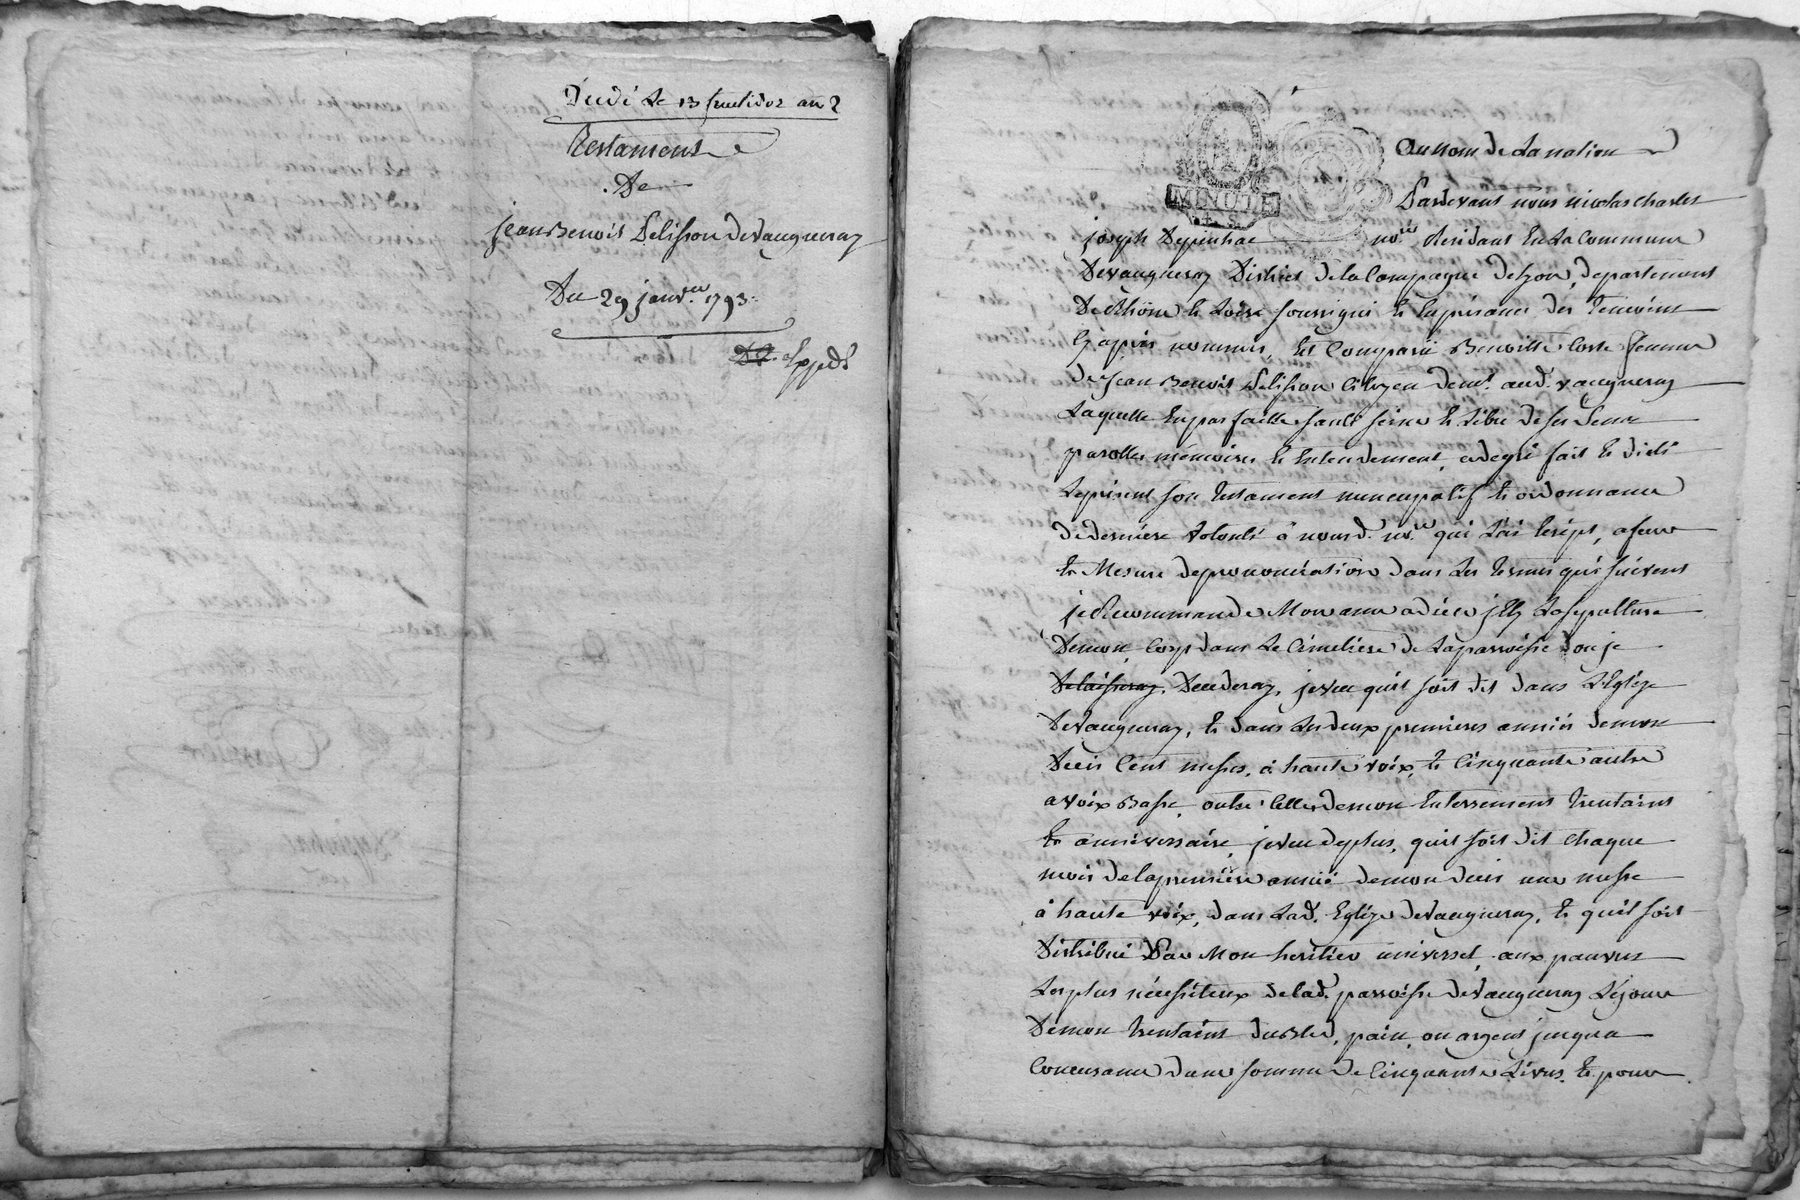 Decdé le 13 fructidor an 2
Testament
De
jean Benoit Pelisson de Vaugneray
Du 29 janv.er 1793.
Expédé
MINUTE
Au nom de la nation
Pardevant nous nicolas charles
joseph Depinhac no.re Residant En la Commune
De vaugneray District de la Campagne de Lyon, departement
De Rhône et Loire soussigné et En présence des temoins
Cy après nommés, Est Comparüe Benoitte Coste femme
de jean Benoit Pelisson Citoyen dem.t aud. vaugneray
Laquelle En parfaitte santé saine et Libre de ses sens
parolles mémoires et Entendement, a de gré fait et dicté
Le présent son testament nuncupatif et ordonnance
de dernière volonté à nous d. no.re qui L'ai Ecript, a feur
et Mesure de prononciation dans Les termes qui suivent
je Recommande Mon ame a dieu jElis La sepulture
De mon Corps dans Le Cimetiere de La parroisse d'ou je
Decederay, je veu qu'il soit dit dans L'Eglize
De Vaugneray, et dans Les deux premieres années de mon
Décès Cent messes, à haute voix, et Cinquante autre
a voix Basse, outre Celles de mon Enterrement trentains
Et anniversaire, je veu de plus, qu'il soit dit chaque
mois de la premiere année de mon décès une messe
à haute voix, dans Lad. Eglize de Vaugneray, et qu'il soit
Distribué Par Mon heritier universel, aux pauvres
Les plus nécessiteux de lad. parroisse de Vaugneray Le jour
De mon trentains du Bled, pain, ou argent jusqu'a
Concurance d'une somme de Cinquante Livres, Et pour